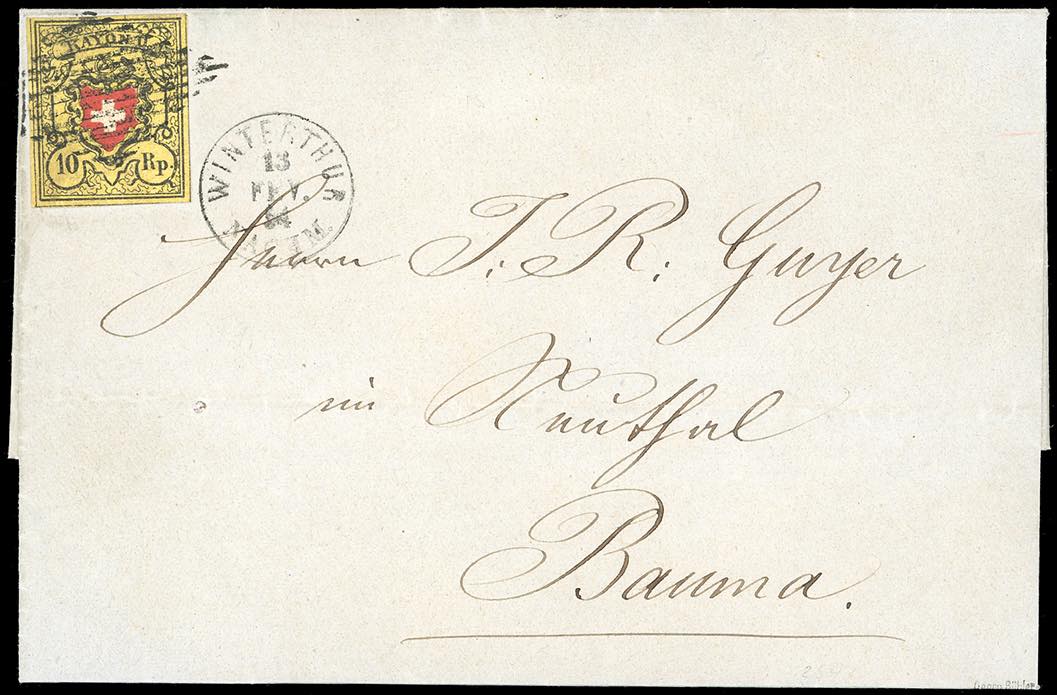 RAYON II
10 Rp.
WINTERTHUR
13
FEV.
54
NACHM.
Herrn J. R. Guyer
im Neuthal
Bauma.